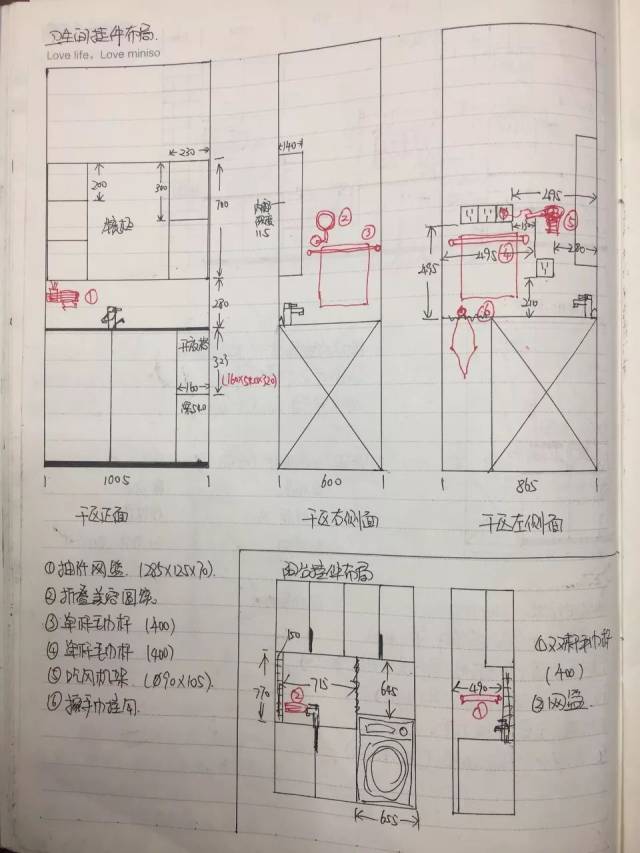 卫生间挂件布局.
Love life, Love miniso
230
200
300
700
镜柜
①
280
开放格
323
160
(160x540x320)
深540
1005
干区正面
140
内部
深度
115
②
③
600
干区右侧面
495
⑤
150
495
④
495
280
210
⑥
865
干区左侧面
①抽纸网篮 (285x125x70).
②折叠美容圆镜.
③单杆毛巾杆 (400)
④单杆毛巾杆 (400)
⑤吹风机架 (Ø90x105).
⑥擦手巾挂钩.
阳台挂件布局
150
770
715
②
645
655
490
①
①双杆毛巾杆
(400)
②网篮